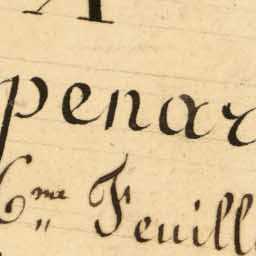 A
penar
6.me Feuill